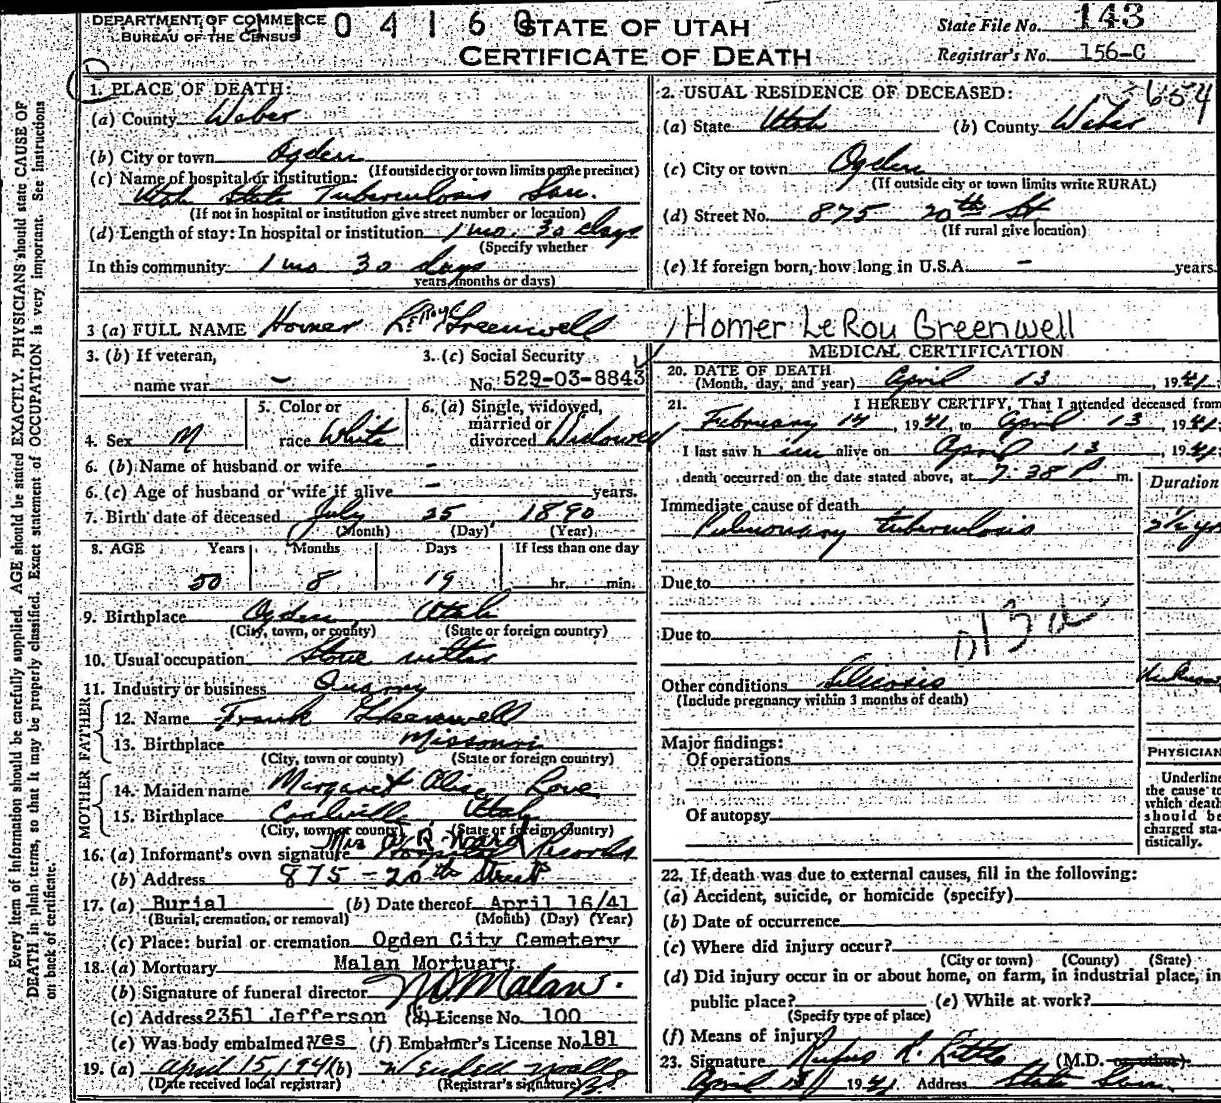 DEPARTMENT OF COMMERCE
BUREAU OF THE CENSUS
04160
STATE OF UTAH
CERTIFICATE OF DEATH
State File No. 143
Registrar's No. 156-C
Every item of information should be carefully supplied. AGE should be stated EXACTLY. PHYSICIANS should state CAUSE OF
DEATH in plain terms, so that it may be properly classified. Exact statement of OCCUPATION is very important. See instructions
on back of certificate.
1. PLACE OF DEATH:
(a) County Weber
(b) City or town Ogden
(If outside city or town limits name precinct)
(c) Name of hospital or institution:
Utah State Tuberculosis San.
(If not in hospital or institution give street number or location)
(d) Length of stay: In hospital or institution 1 mo. 30 days
(Specify whether
In this community 1 mo 30 days
years, months or days)
2. USUAL RESIDENCE OF DECEASED: 654
(a) State Utah (b) County Weber
(c) City or town Ogden
(If outside city or town limits write RURAL)
(d) Street No. 875 20th St
(If rural give location)
(e) If foreign born, how long in U.S.A. - years.
3 (a) FULL NAME Homer LeRoy Greenwell
Homer LeRoy Greenwell
3. (b) If veteran, name war -
3. (c) Social Security No. 529-03-8843
4. Sex M
5. Color or race White
6. (a) Single, widowed, married or divorced Widowed
6. (b) Name of husband or wife -
6. (c) Age of husband or wife if alive - years.
7. Birth date of deceased July 25 1890
(Month) (Day) (Year)
8. AGE Years Months Days If less than one day
50 8 19 hr. min.
9. Birthplace Ogden Utah
(City, town, or county) (State or foreign country)
10. Usual occupation Stone cutter
11. Industry or business Quarry
FATHER
12. Name Frank Greenwell
13. Birthplace Missouri
(City, town or county) (State or foreign country)
MOTHER
14. Maiden name Margaret Alice Love
15. Birthplace Coalville Utah
(City, town or county) (State or foreign country)
Mrs. Ward
16. (a) Informant's own signature Hospital Records
(b) Address 875 - 20th Street
17. (a) Burial (b) Date thereof April 16/41
(Burial, cremation, or removal) (Month) (Day) (Year)
(c) Place: burial or cremation Ogden City Cemetery
18. (a) Mortuary Malan Mortuary
(b) Signature of funeral director Malan.
(c) Address 2351 Jefferson (d) License No. 100
(e) Was body embalmed yes (f) Embalmer's License No. 181
19. (a) April 15, 1941 (b)
(Date received local registrar) (Registrar's signature)
MEDICAL CERTIFICATION
20. DATE OF DEATH
(Month, day, and year) April 13, 1941.
21. I HEREBY CERTIFY, That I attended deceased from
February 14, 1941, to April 13, 1941.
I last saw him alive on April 13, 1941.
death occurred on the date stated above, at 7:38 P. m.
Duration
Immediate cause of death
Pulmonary tuberculosis 2½ yr
Due to
Due to
Other conditions Silicosis
(Include pregnancy within 3 months of death)
Major findings:
Of operations
Of autopsy
PHYSICIAN
Underline
the cause to
which death
should be
charged sta-
tistically.
22. If death was due to external causes, fill in the following:
(a) Accident, suicide, or homicide (specify)
(b) Date of occurrence
(c) Where did injury occur?
(City or town) (County) (State)
(d) Did injury occur in or about home, on farm, in industrial place, in
public place? (e) While at work?
(Specify type of place)
(f) Means of injury
23. Signature Rufus R. (M.D. or other)
April 1941 Address State San.